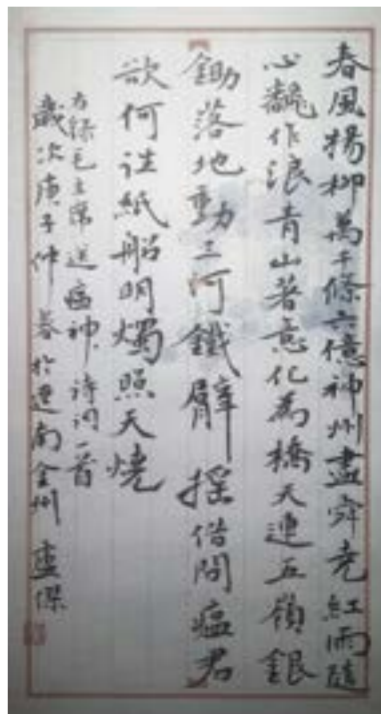 春風楊柳萬千條六億神州盡舜堯紅雨隨
心飜作浪青山著意化為橋天連五嶺銀
鋤落地動三河鐵臂搖借問瘟君
欲何往紙船明燭照天燒
右錄毛主席送瘟神詩詞一首
歲次庚子仲春於遼南金州 盧傑